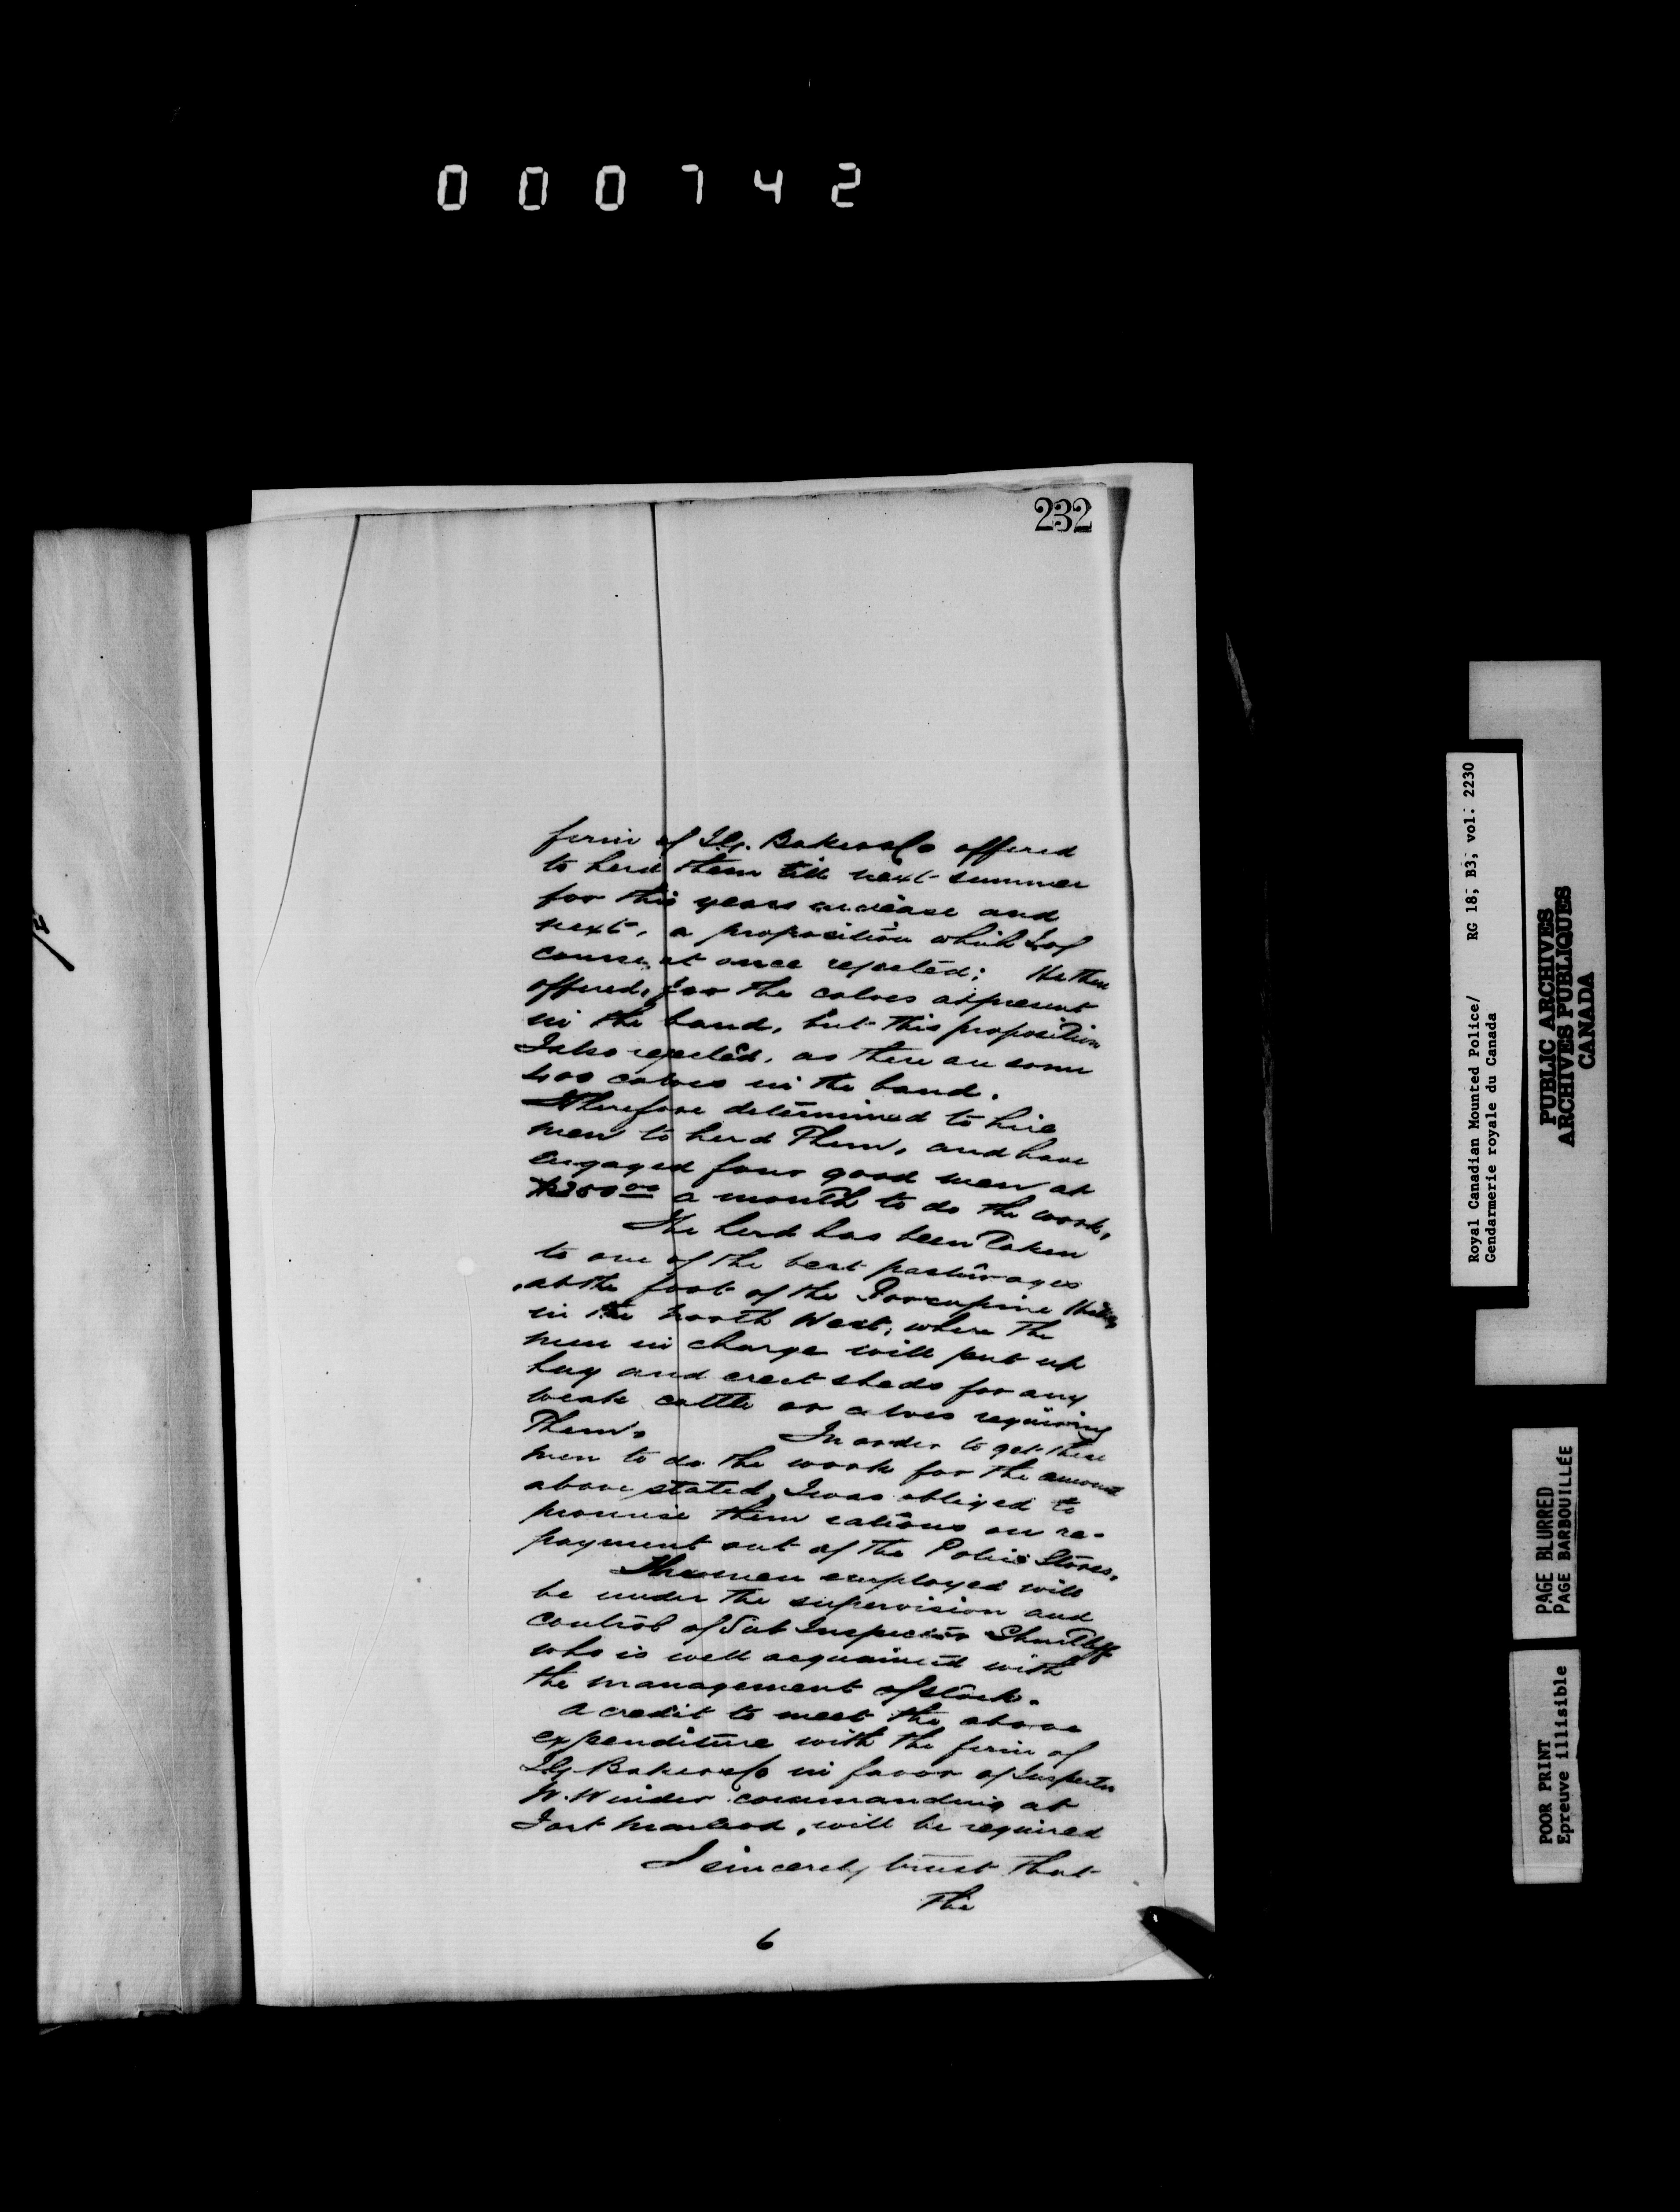 000742
232
firm of I.G. Baker & Co offered
to herd them till next summer
for this years increase and
next, a proposition which I of
course at once rejected; He then
offered, for the calves at present
in the band, but this proposition
I also rejected, as there are some
400 calves in the band.
I therefore determined to hire
men to herd them, and have
engaged four good men at
a month to do the work,
The herd has been taken
to one of the best pasturages
at the foot of the Porcupine Hills
in the North West, where the
men in charge will put up
hay and erect sheds for any
weak cattle or calves requiring
them. In order to get these
men to do the work for the amount
above stated, I was obliged to
promise them rations on re-
payment out of the Police Stores.
The men employed will
be under the supervision and
control of Sub Inspector Shurtliff
who is well acquainted with
the management of stock.
A credit to meet the above
expenditure with the firm of
I.G. Baker & Co in favor of Inspector
W. Winder commanding at
Fort Macleod, will be required
I sincerely trust that
the
6
Royal Canadian Mounted Police/ RG 18; B3; vol. 2230
Gendarmerie royale du Canada
PUBLIC ARCHIVES
ARCHIVES PUBLIQUES
CANADA
PAGE BLURRED
PAGE BARBOUILLÉE
POOR PRINT
Epreuve illisible